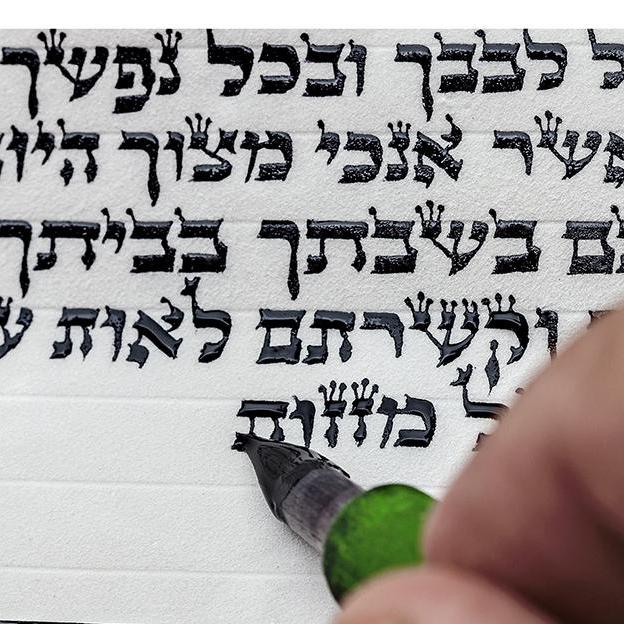 לבבך ובכל נפשך
אשר אנכי מצוך
בשבתך בביתך
וקשרתם לאות
מזזות